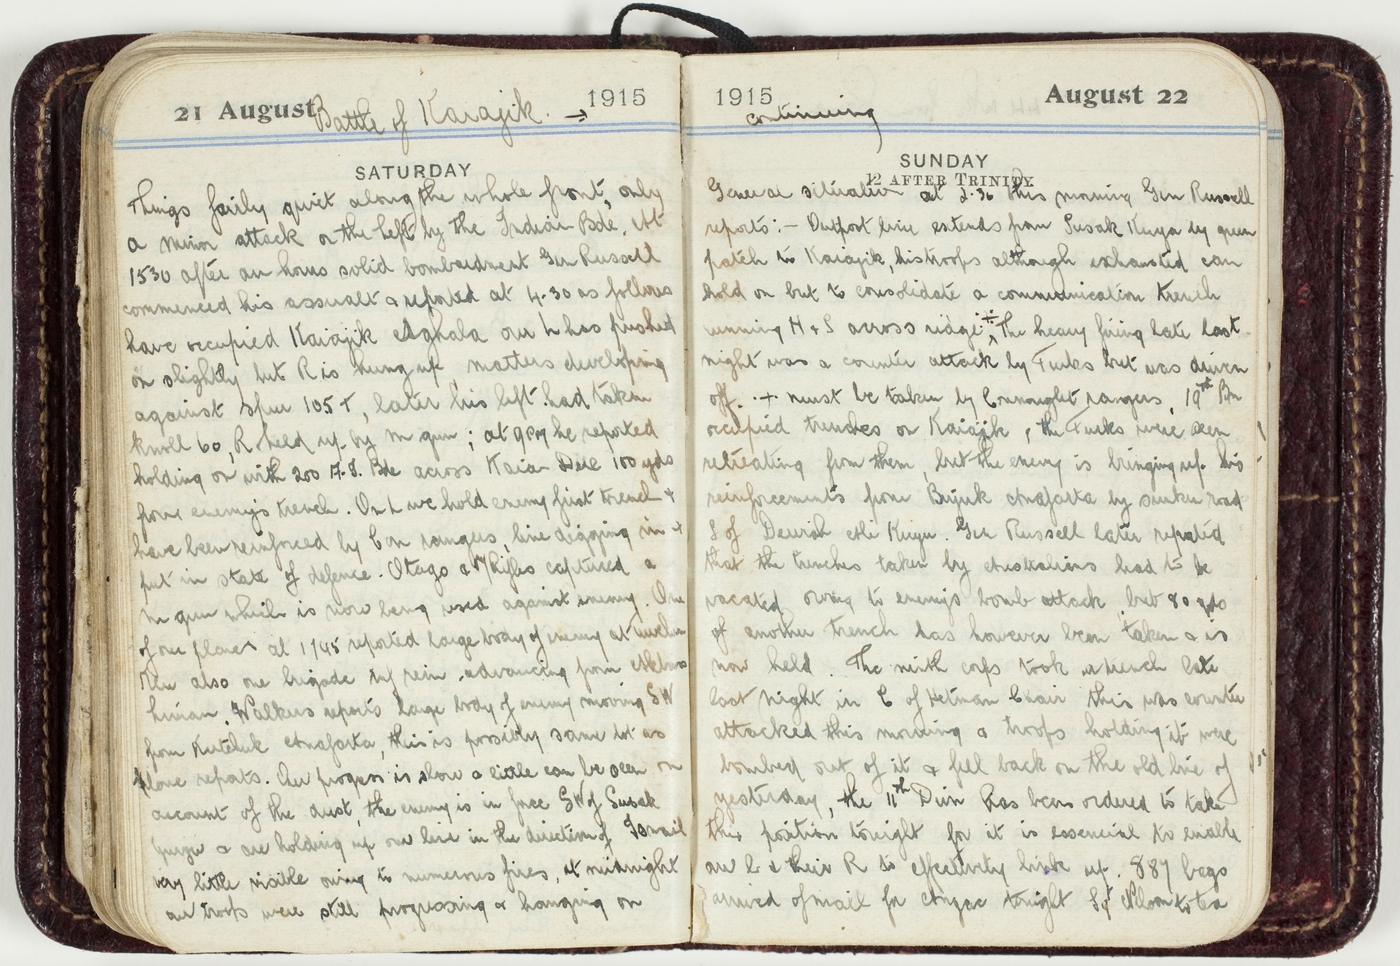 21 August Battle of Kaiajik. → 1915
SATURDAY
Things fairly quiet along the whole front, only
a minor attack on the left by the Indian Bde. At
1530 after an hours solid bombardment Gen Russell
commenced his assualt & reported at 4.30 as follows
have occupied Kaiajik Aghala our L has pushed
on slightly but R is hung up, matters developing
against spur 105 T, later his left had taken
knoll 60, R. held up by m gun; at 9 PM he reported
holding on with 200 A.I. Bde across Kaia Dere 100 yds
from enemys trench. On L we hold enemy first trench &
have been reinforced by Con rangers, line digging in &
put in state of defence. Otago & M Rifles captured a
m gun which is now being used against enemy. One
of our planes at 1745 reported large body of enemy at
also one brigade inf rein advancing from
human. Walkers reports large body of enemy moving SW
from Kuteluk Anafarta, this is possibly same lot as
plane reports. Our progress is slow a little can be seen on
account of the dust, the enemy is in force SW of Susak
& are holding up our line in the direction of Ismail
very little visible owing to numerous fires, at midnight
our troops were still progressing & hanging on
1915 August 22
continuing
SUNDAY
12 AFTER TRINITY
General situation at 2.30 this morning Gen Russell
reports:- Outpost line extends from Susak Kuyu by green
patch to Kaiajik, his troops although exhausted can
hold on but to consolidate a communication trench
running N & S across ridge. The heavy firing late last
night was a counter attack by Turks but was driven
off. + must be taken by Connought rangers, 19th Bn
occupied trenches on Kaiajik, the Turks were seen
retreating from them but the enemy is bringing up his
reinforcements from Bijuk Anafarta by sunken road
S of Dewish Ali Kuyu. Gen Russell later reported
that the trenches taken by Australians had to be
vacated owing to enemys bomb attack, but 80 yds
of another trench has however been taken & is
now held. The ninth corps took a trench late
last night in C of Hetman Chair this was counter
attacked this morning & troops holding it were
bombed out of it & fell back on the old line of
yesterday, the 11th Divn has been ordered to take
this position tonight for it is essencial to enable
our L & their R to effectively link up. 887 bags
arrived of mail for Anzac tonight